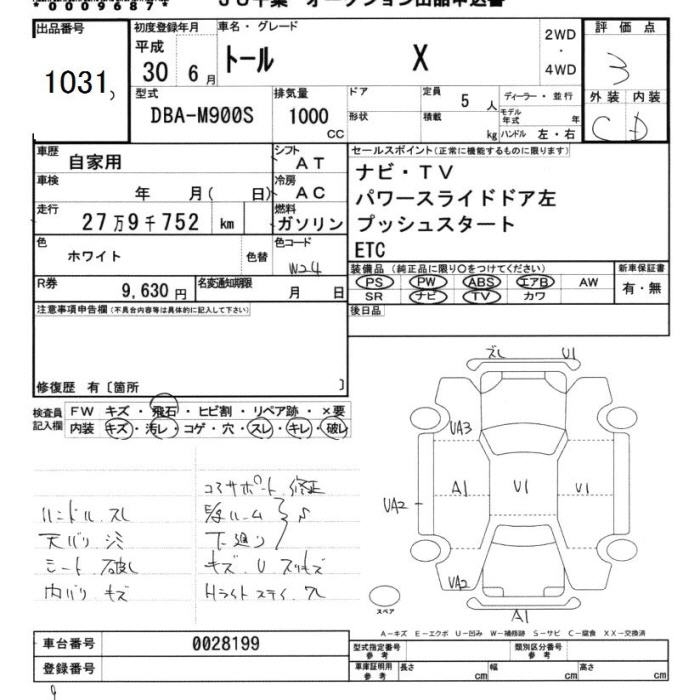 *0009687*
JU千葉 オークション出品申込書
出品番号 1031
初度登録年月 平成 30 6月
車名・グレード トール X
2WD ・ 4WD
評価点 3
外装 内装 C D
型式 DBA-M900S
排気量 1000 CC
ドア 形状
定員 5 人
積載 kg
ディーラー・並行
モデル年式 年
ハンドル 左・右
車歴 自家用
シフト AT
車検 年 月( 日)
冷房 AC
走行 27万9千752 km
燃料 ガソリン
色 ホワイト 色替
色コード W24
R券 9,630 円
名変通知期限 月 日
セールスポイント(正常に機能するものに限ります)
ナビ・TV
パワースライドドア左
プッシュスタート
ETC
装備品(純正品に限り○をつけてください)
PS PW ABS エアB AW
SR ナビ TV カワ
新車保証書 有・無
後日品
注意事項申告欄(不具合内容等は具体的に記入して下さい)
修復歴 有〔箇所 〕
検査員記入欄
FW キズ・飛石・ヒビ割・リペア跡・×要
内装 キズ・汚レ・コゲ・穴・スレ・キレ・破レ
コアサポート 修正
ハンドル スレ
天バリ
シート 破レ
下廻り
内バリ キズ
キズ U
Hライト
スレ U1
UA3
A1 U1 U1
UA2
UA2
A1
スペア
A-キズ E-エクボ U-凹み W-補修跡 S-サビ C-腐食 XX-交換済
車台番号 0028199
登録番号
型式指定番号 参考
類別区分番号 参考
車庫証明用 参考
長さ cm 幅 cm 高さ cm